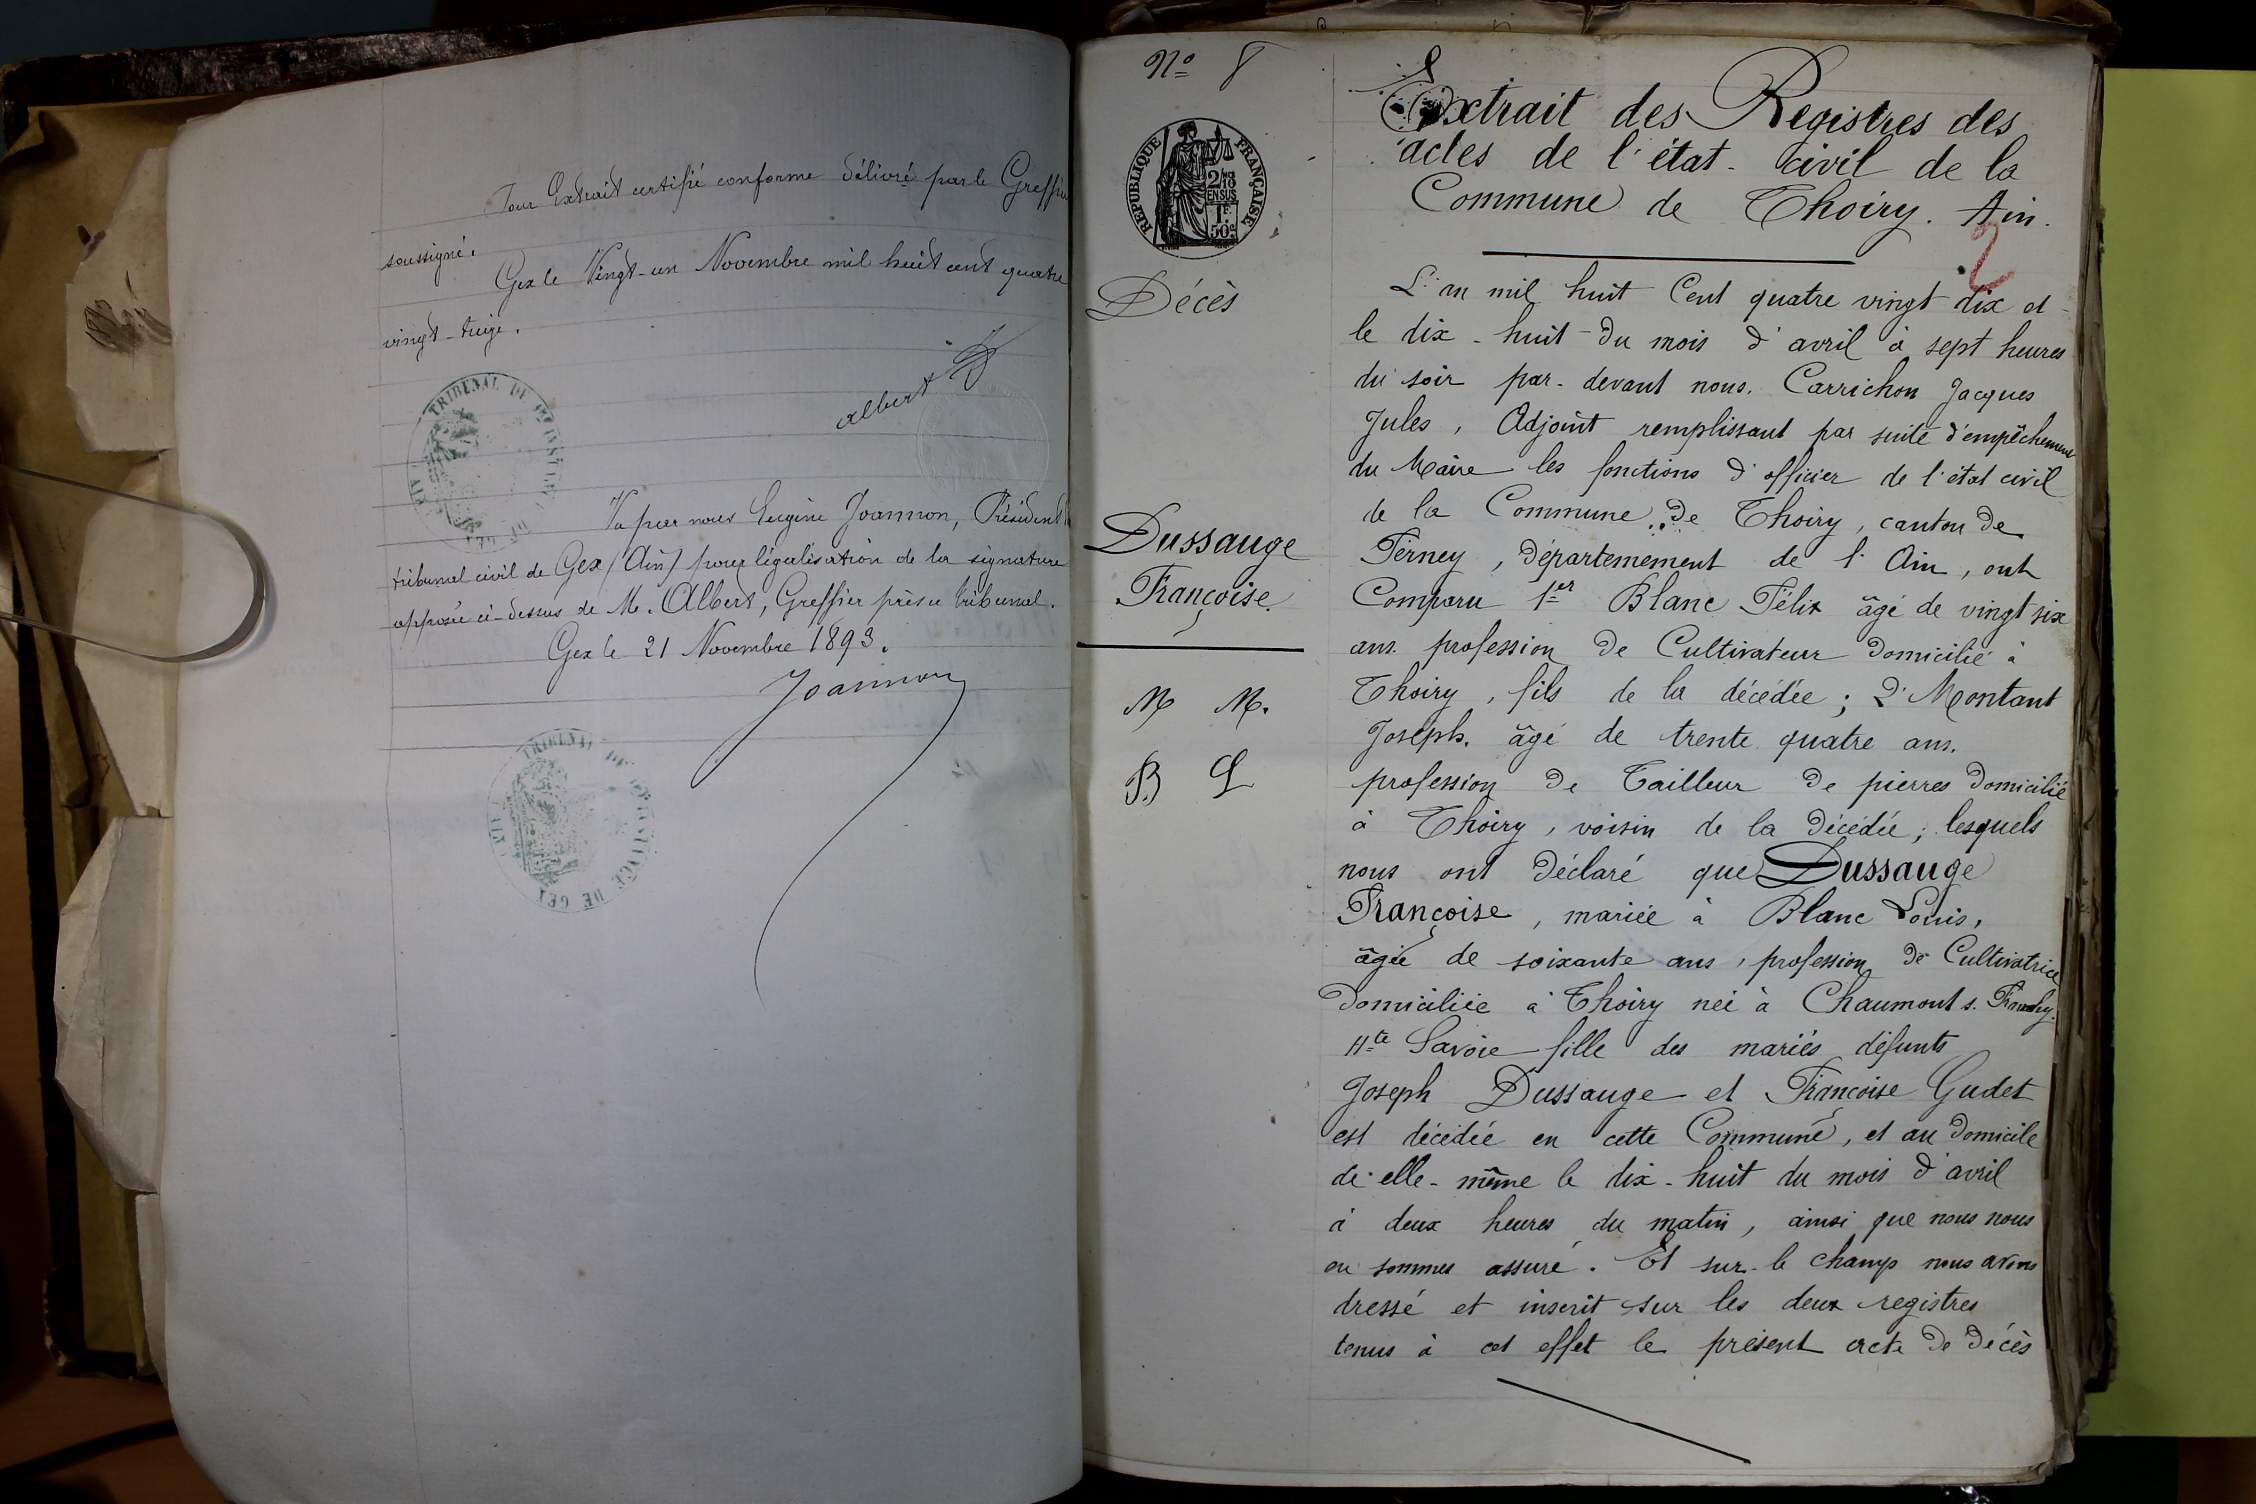 Pour Extrait certifié conforme délivré par le Greffier
soussigné.
Gex le Vingt-un Novembre mil huit cent quatre
vingt-treize.
albert
TRIBUNAL DE 1ère INSTANCE DE GEX (AIN)
Vu par nous Eugène Joannon, Président du
tribunal civil de Gex (Ain) pour légalisation de la signature
apposée ci-dessus de M. Albert, Greffier près ce tribunal.
Gex le 21 Novembre 1893.
Joannon
TRIBUNAL DE 1ère INSTANCE DE GEX (AIN)
No 8
RÉPUBLIQUE FRANÇAISE
2/10
EN SUS
1F.
50c.
Décès
Dussauge
Françoise.
M M.
B L
Extrait des Registres des
actes de l'état-civil de la
Commune de Thoiry. Ain.
2
L'an mil huit Cent quatre vingt dix et
le dix-huit du mois d'avril à sept heures
du soir par-devant nous. Carrichon Jacques
Jules, Adjoint remplissant par suite d'empêchement
du Maire les fonctions d'officier de l'état civil
de la Commune de Thoiry, canton de
Ferney, département de l'Ain, ont
Comparu 1er Blanc Félix âgé de vingt six
ans. profession de Cultivateur domicilié à
Thoiry, fils de la décédée; 2° Montant
Joseph. âgé de trente quatre ans.
profession de Tailleur de pierres domicilié
à Thoiry, voisin de la décédée; lesquels
nous ont déclaré que Dussauge
Françoise, mariée à Blanc Louis,
âgée de soixante ans, profession de Cultivatrice
domiciliée à Thoiry née à Chaumont s. Frangy.
Hte Savoie fille des mariés défunts
Joseph Dussauge et Françoise Gudet
est décédée en cette Commune, et au domicile
de elle-même le dix-huit du mois d'avril
à deux heures du matin, ainsi que nous nous
en sommes assuré. Et sur-le champ nous avons
dressé et inscrit sur les deux registres
tenus à cet effet le présent acte de décès